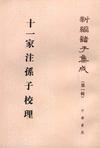 新編諸子集成
(第一輯)
十一家注孫子校理
中華書局